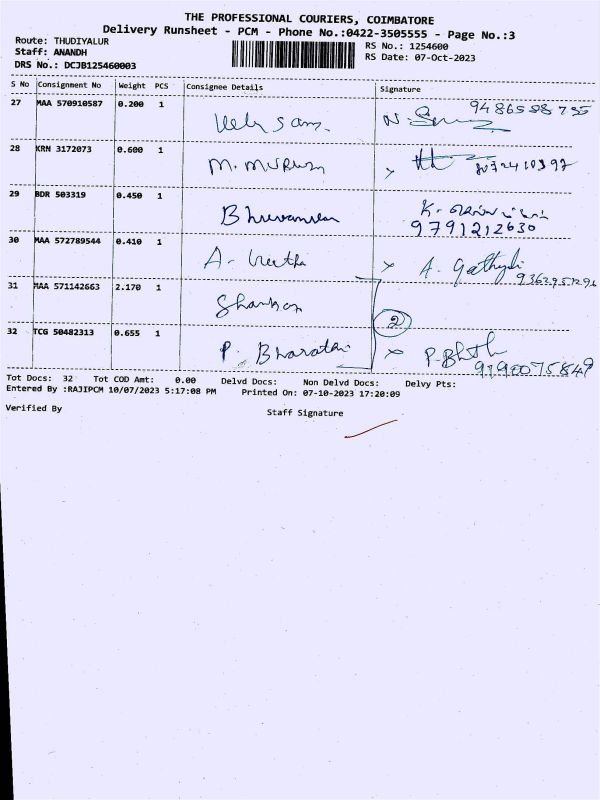 THE PROFESSIONAL COURIERS, COIMBATORE
Delivery Runsheet - PCM - Phone No.:0422-3505555 - Page No.:3
Route: THUDIYALUR
RS No.: 1254600
Staff: ANANDH
RS Date: 07-Oct-2023
DRS No.: DCJB125460003
S No Consignment No Weight PCS Consignee Details Signature
27 MAA 570910587 0.200 1
28 KRN 3172073 0.600 1 M. Murugan
29 BDR 503319 0.450 1 Bhuvaneswari
9791212630
30 MAA 572789544 0.410 1 A. Geetha
31 MAA 571142663 2.170 1 Shankar
2
32 TCG 50482313 0.655 1 P. Bharathi
Tot Docs: 32 Tot COD Amt: 0.00 Delvd Docs: Non Delvd Docs: Delvy Pts:
Entered By :RAJIPCM 10/07/2023 5:17:08 PM Printed On: 07-10-2023 17:20:09
Verified By
Staff Signature